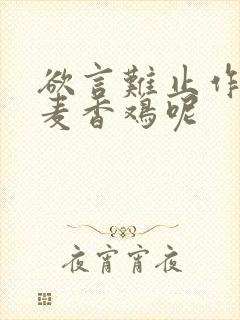 欲言難止作
麦香鸡呢
夜宵宵夜